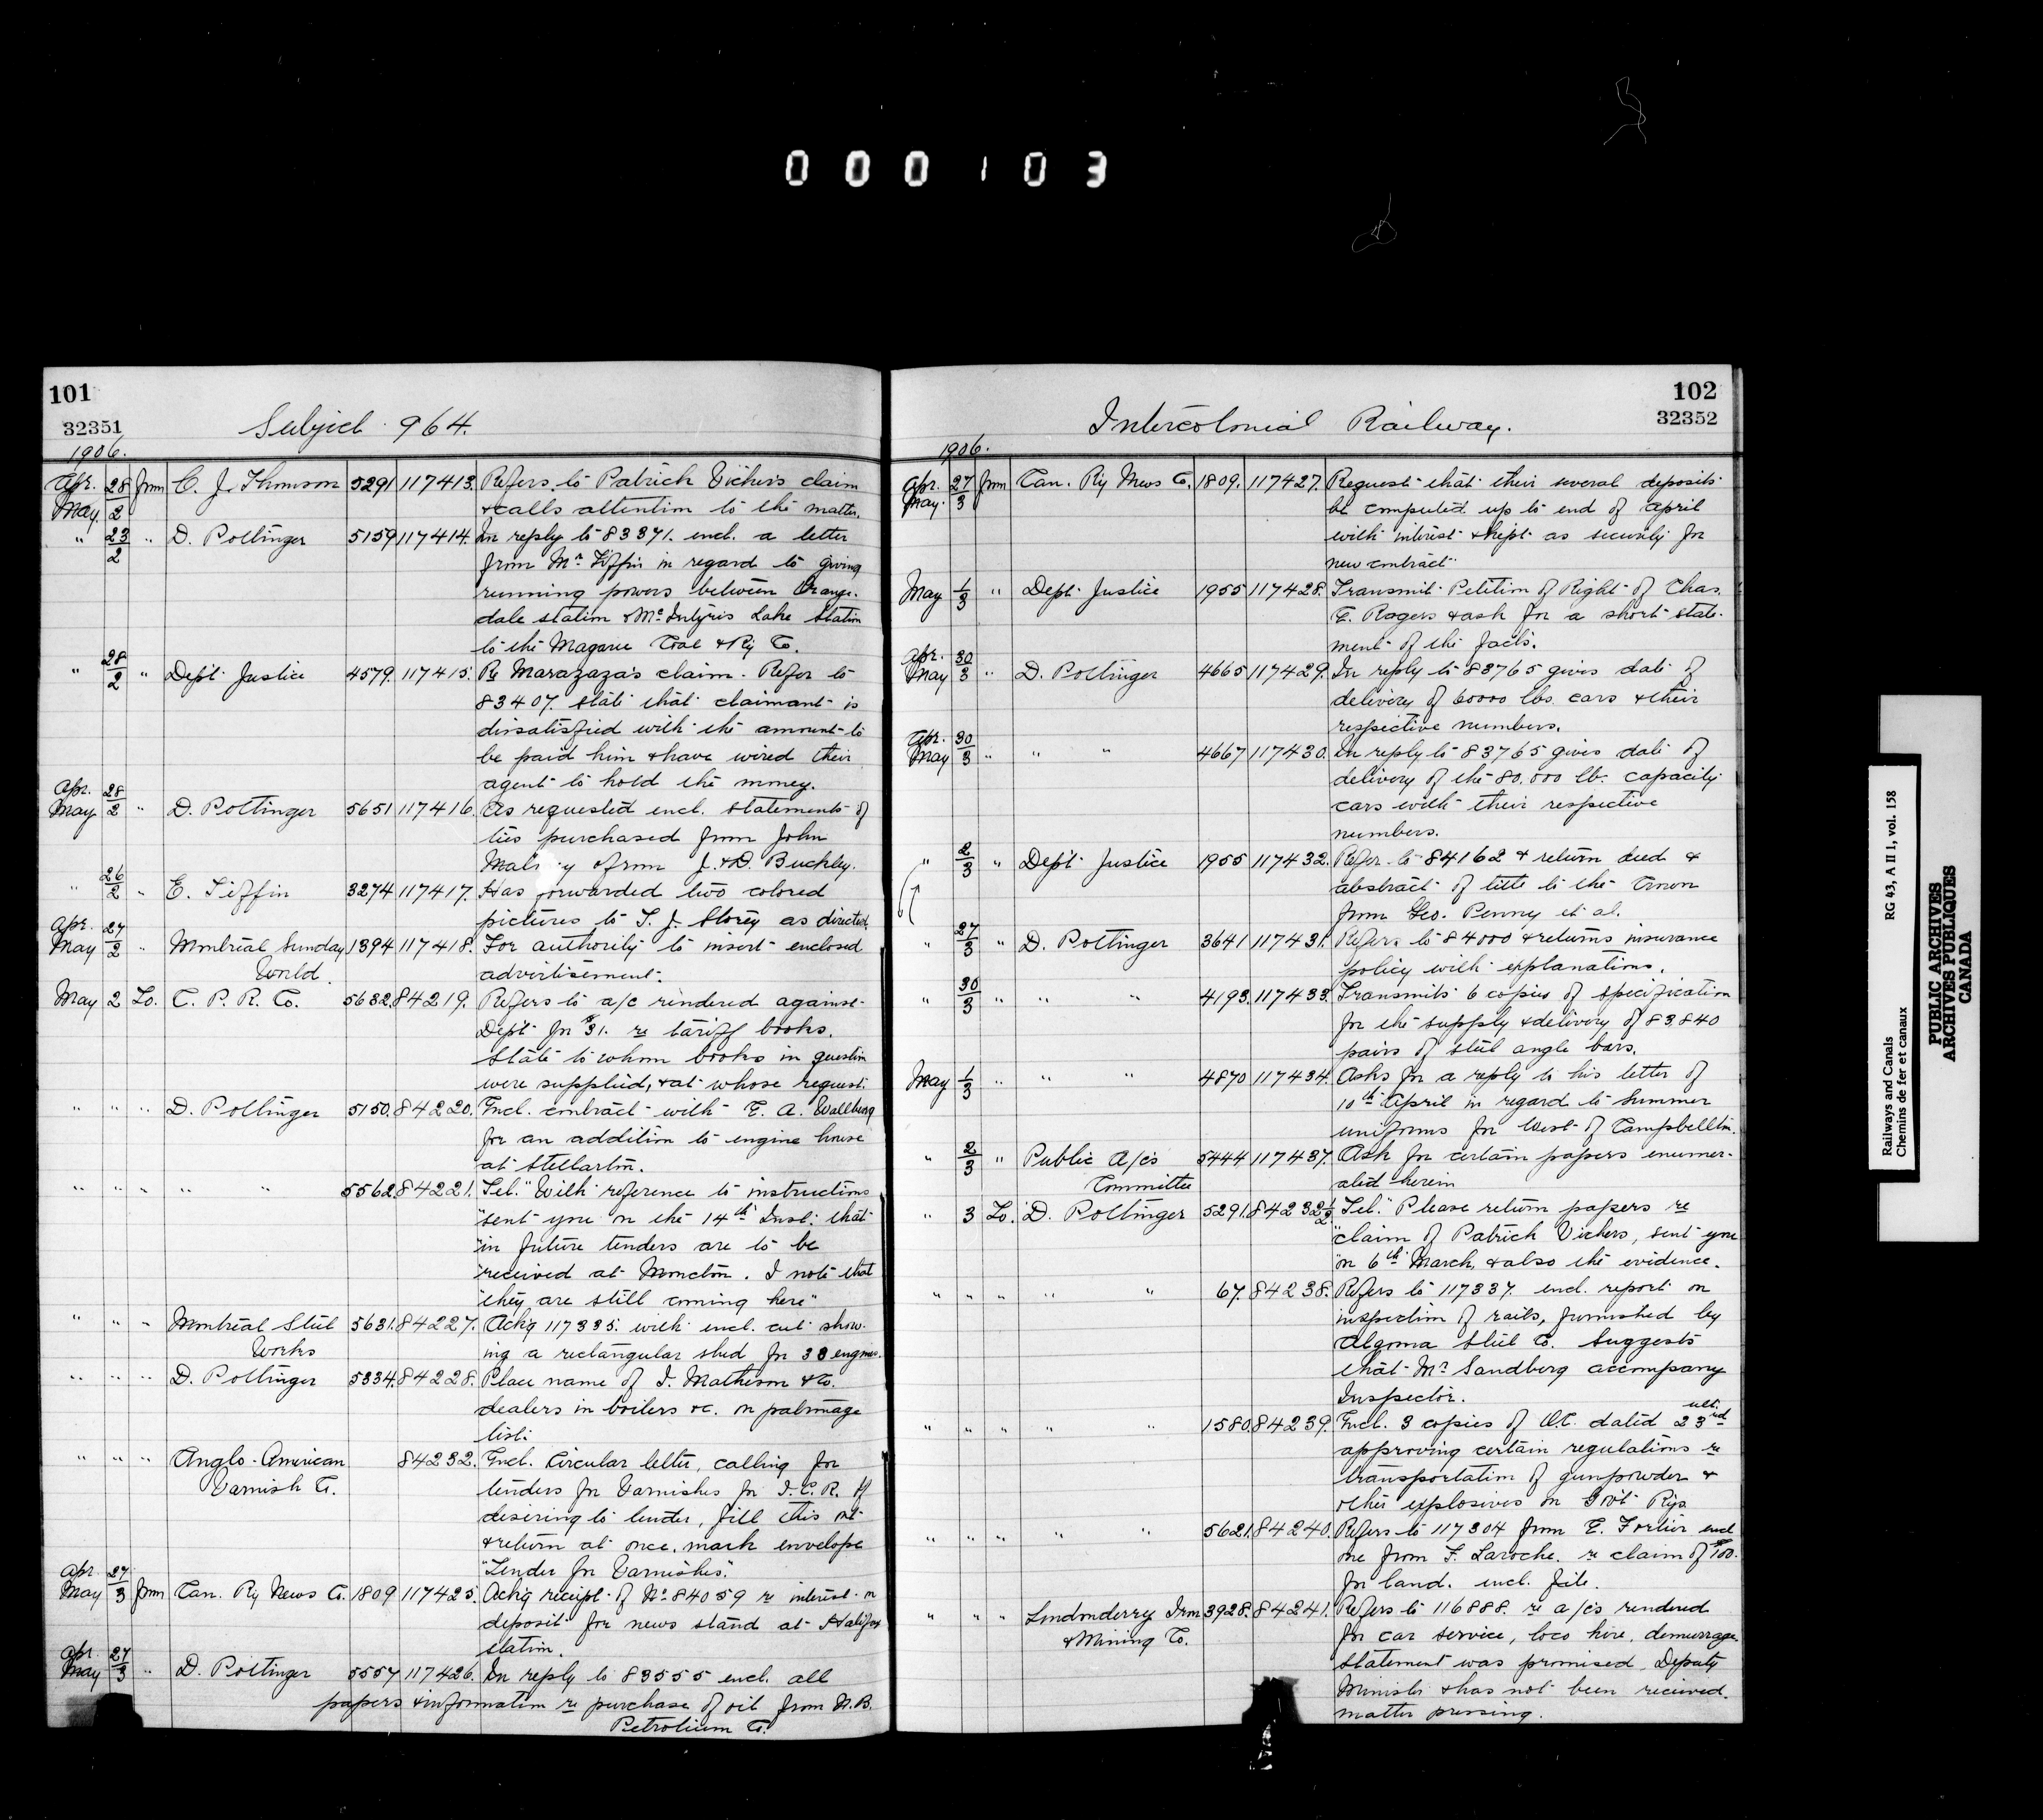 000103
101
32351
Subject 964.
1906.
Apr. 28 from C. J. Thomson 5291 117413. Refers to Patrick Vicker's claim
May. 2 & calls attention to the matter.
" 23/2 " D. Pottinger 5159 117414. In reply to 83371. encl. a letter
from Mr. Tiffin in regard to giving
running powers between Orange-
dale station & McIntyres Lake Station
to the Magaree Coal & Ry Co.
" 28/2 " Dept. Justice 4579. 117415. Re Marazaza's claim. Refer to
83407. state that claimant is
dissatisfied with the amount to
be paid him & have wired their
agent to hold the money.
Apr. 28
May 2 " D. Pottinger 5651 117416. As requested encl. statements of
ties purchased from John
& from J. & D. Buckley.
" 26/2 " E. Tiffin 3274 117417. Has forwarded two colored
pictures to T. J. Storey as directed.
Apr. 27
May 2 " Montreal Sunday 1394 117418. For authority to insert enclosed
World. advertisement.
May 2 To. C. P. R. Co. 5632. 84219. Refers to a/c rendered against
Dept. for $31. re tariff books.
State to whom books in question
were supplied, & at whose request.
" " " D. Pottinger 5150. 84220. Encl. contract with E. A. Wallberg
for an addition to engine house
at Stellarton.
" " " " " 5562. 84221. Tel. "With reference to instructions
"sent you on the 14th Inst. that
"in future tenders are to be
"received at Moncton. I note that
"they are still coming here"
" " " Montreal Steel 5631. 84227. Ackg 117335. with encl. cut show-
Works ing a rectangular shed for 38 engines.
" " " D. Pottinger 5334. 84228. Place name of I. Matheson & Co.
dealers in boilers &c. on patronage
list.
" " " Anglo-American 84232. Encl. Circular letter, calling for
Varnish Co. tenders for Varnishes for I.C.R. If
desiring to tender, fill this out
& return at once, mark envelope
"Tender for Varnishes."
Apr. 27
May 3 from Can. Ry News Co. 1809 117425. Ackg receipt of No. 84059 re interest on
deposit for news stand at Halifax
station.
Apr. 27
May 3 " D. Pottinger 5557 117426. In reply to 83555 encl. all
papers & information re purchase of oil from N.B.
Petroleum Co.
102
32352
Intercolonial Railway.
1906.
Apr. 27 from Can. Ry News Co. 1809. 117427. Request that their several deposits
May. 3 be computed up to end of April
with interest & kept as security for
new contract.
May 1/3 " Dept. Justice 1955 117428. Transmit Petition of Right of Chas.
E. Rogers & ask for a short state-
ment of the facts.
Apr. 30
May 3 " D. Pottinger 4665 117429. In reply to 83765 gives date of
delivery of 60000 lbs. cars & their
respective numbers.
Apr. 30
May 3 " " " 4667 117430. In reply to 83765 gives date of
delivery of the 80,000 lb. capacity
cars with their respective
numbers.
" 2/3 " Dept. Justice 1955 117432. Refer to 84162 & return deed &
abstract of title to the Crown
from Geo. Penny et al.
" 27/3 " D. Pottinger 3641 117431. Refers to 84000 & returns insurance
policy with explanations.
" 30/3 " " " 4193. 117433. Transmits 6 copies of specification
for the supply & delivery of 83,840
pairs of steel angle bars.
May 1/3 " " " 4870 117434. Asks for a reply to his letter of
10th April in regard to Summer
uniforms for West of Campbellton.
" 2/3 " Public A/cs 5444 117437. Ask for certain papers enumer-
Committee ated herein
" 3 To. D. Pottinger 5291. 84232½ Tel. "Please return papers re
"claim of Patrick Vickers, sent you
"on 6th March, & also the evidence.
" " " " " 67. 84238. Refers to 117337. encl. report on
inspection of rails, furnished by
Algoma Steel Co. Suggests
that Mr. Sandberg accompany
Inspector.
" " " " " 1580. 84239. Encl. 3 copies of O.C. dated 23rd ult.
approving certain regulations re
transportation of gunpowder &
other explosives on Govt Rys.
" " " " " 5621. 84240. Refers to 117304 from E. Fortier encl
one from F. Laroche. re claim of $100.
for land. encl. file.
" " " Londonderry Iron 3928. 84241. Refers to 116888. re a/cs rendered
& Mining Co. for car service, loco hire, demurrage.
Statement was promised Deputy
Minister & has not been received.
matter pressing.
Railways and Canals RG 43, A II 1, vol. 158
Chemins de fer et canaux
PUBLIC ARCHIVES
ARCHIVES PUBLIQUES
CANADA